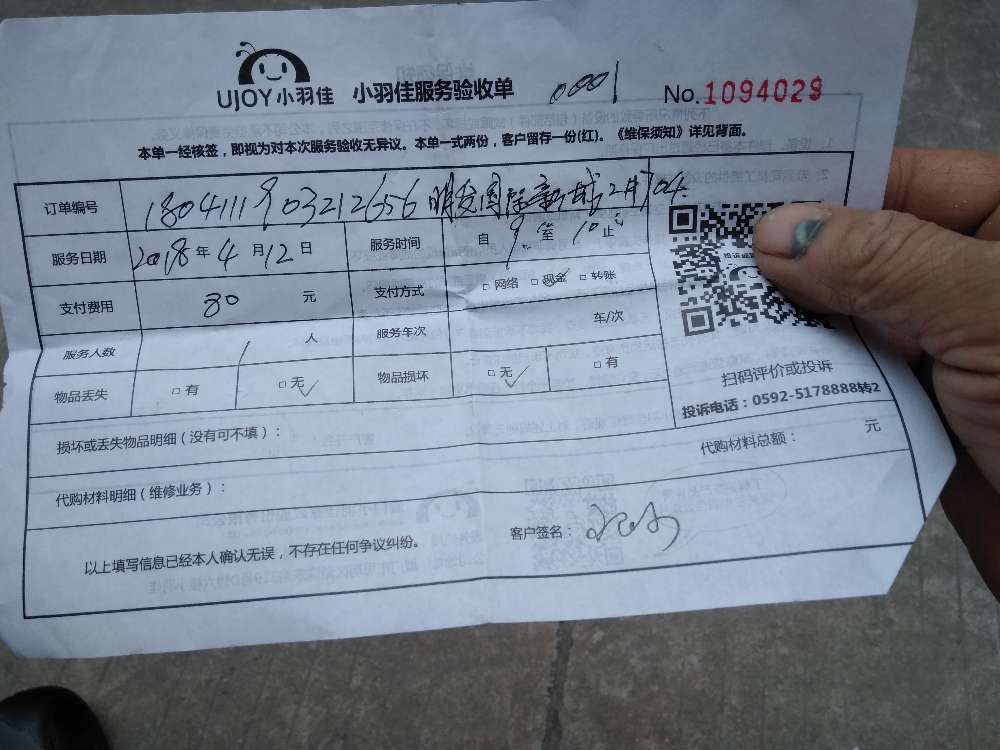 UJOY小羽佳 小羽佳服务验收单 0001 No.1094029
本单一经核签，即视为对本次服务验收无异议。本单一式两份，客户留存一份(红)。《维保须知》详见背面。
订单编号 1804111903212656 明发国际新城2#704
服务日期 2018年4月12日 服务时间 自9至10止
支付费用 80 元 支付方式 □网络 □现金 □转账
服务人数 1 人 服务车次 车/次
物品丢失 □有 □无 物品损坏 □无 □有
扫码评价或投诉
投诉电话：0592-5178888转2
损坏或丢失物品明细（没有可不填）：
代购材料明细（维修业务）： 代购材料总额： 元
以上填写信息已经本人确认无误，不存在任何争议纠纷。 客户签名：